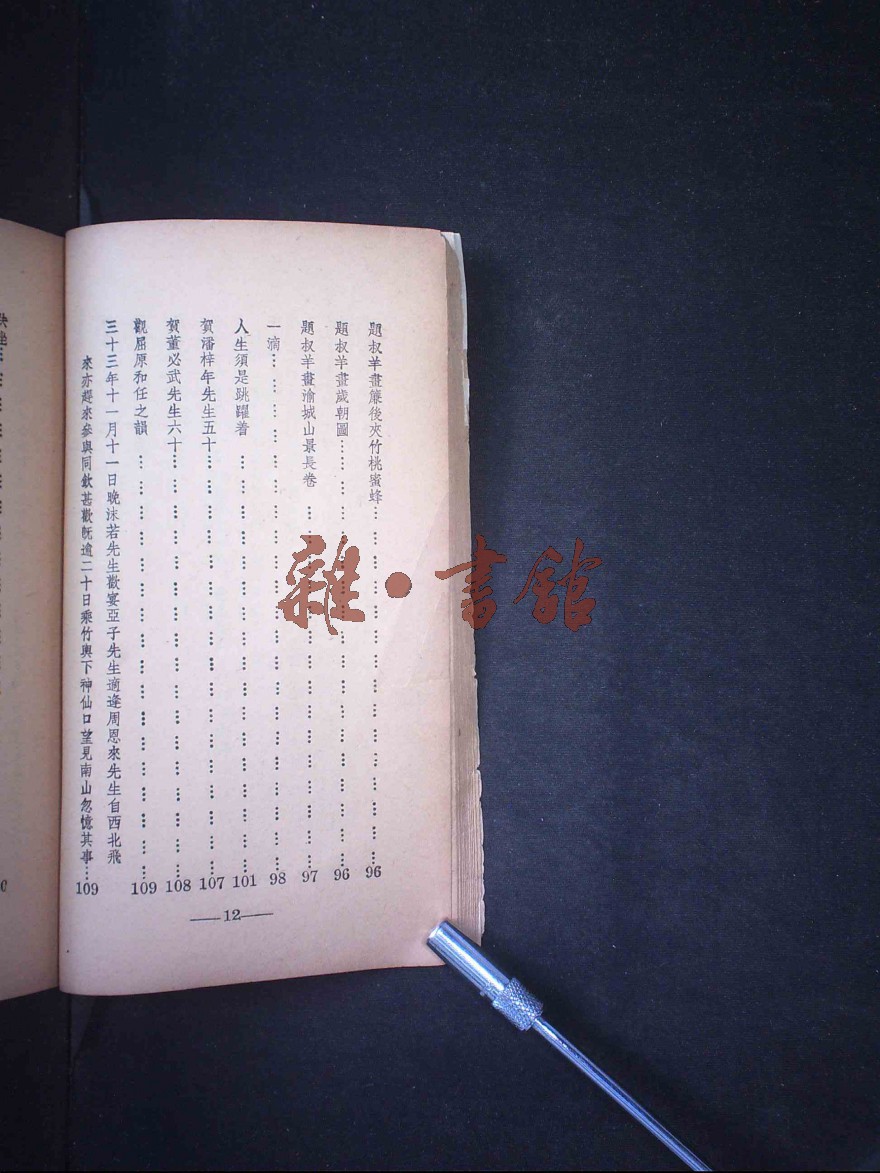 題叔羊畫簾後夾竹桃蜜蜂……………………96
題叔羊畫歲朝圖……………………96
題叔羊畫渝城山景長卷……………………97
一滴……………………98
人生須是跳躍着……………………101
賀潘梓年先生五十……………………107
賀董必武先生六十……………………108
觀屈原和任之韻……………………109
三十三年十一月十一日晚沫若先生歡宴亞子先生適逢周恩來先生自西北飛
來亦趕來參與同飲甚歡旣逾二十日乘竹輿下神仙口望見南山忽憶其事…109
——12——
雜·書館